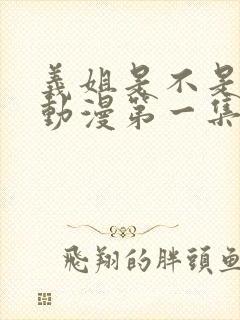 義姐是不是
動漫第一集
飛翔的胖頭魚